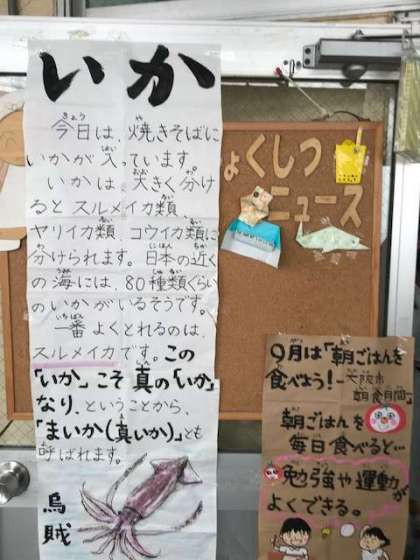 いか
今日は、焼きそばに
いかが入っています。
いかは、大きく分け
るとスルメイカ類、
ヤリイカ類、コウイカ類に
分けられます。日本の近く
の海には、80種類ぐらい
のいかがいるそうです。
一番よくとれるのは、
スルメイカです。この
「いか」こそ真の「いか」
なり、ということから、
「まいか(真いか)」とも
呼ばれます。
烏賊
ょくしつ
ニュース
9月は「朝ごはんを
食べよう!」
大阪市
朝食月間
朝ごはんを
毎日食べると…
勉強や運動が
よくできる。